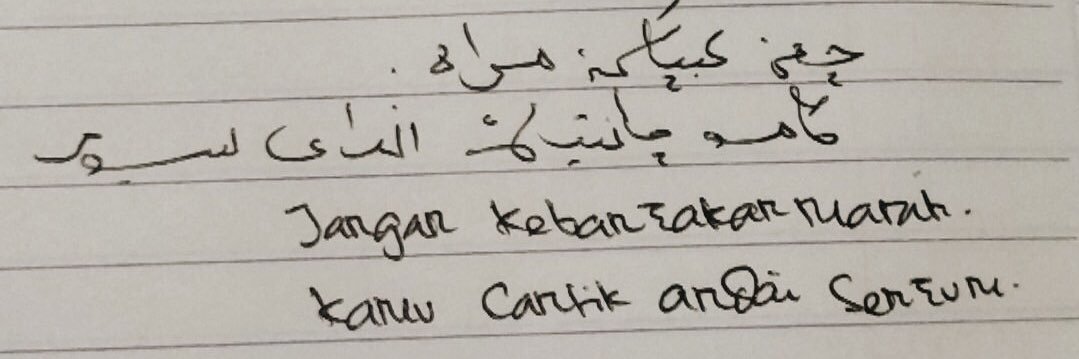 جڠن كبياكن مراه .
كامو چانتيك انداي
Jangan kebanyakan marah.
kamu Cantik andai Senyum.